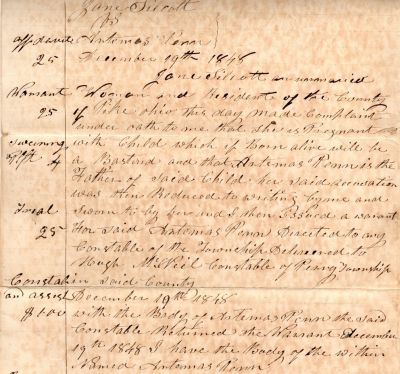 Jane Silcott
vs
affidavit Artemas Penn
25 December 19th 1848
Jane Silcott an unmarried
Warrant Woman and Resident of the County
25 of Pike Ohio this day made Complaint
under oath to me that She is Pregnant
Swearing with Child which if Born alive will be
4 a Bastard and that Artemas Penn is the
Father of Said Child her Said accusation
was then Reduced to writing by me and
Trial Sworn to by her and I then Issued a warant
25 for Said Artemas Penn Directed to any
Constable of the Township Delivered to
Hugh McNeil Constable of Township
Constable in Said County
an assist December 19th 1848
with the Body of Artemas Penn the Said
Constable Returned the Warrant December
19th 1848 I have the Body of the within
Named Artemas Penn